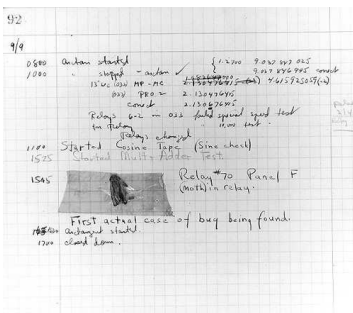 92
9/9
0800 antan started
1000 " stopped - antan ✓ { 1.2700 9.037 847 025
9.037 846 995 correct
13" uc (032) MP - MC 4.615925059(-2)
(033) PRO 2 2.130476415
correct 2.130676415
Relays 6-2 in 033 failed special speed test
in Relay 10,000 test.
Relays changed
1100 Started Cosine Tape (Sine check)
1525 Started Multi Adder Test.
1545 Relay #70 Panel F
(moth) in relay.
First actual case of bug being found.
antangent started.
1700 closed down.